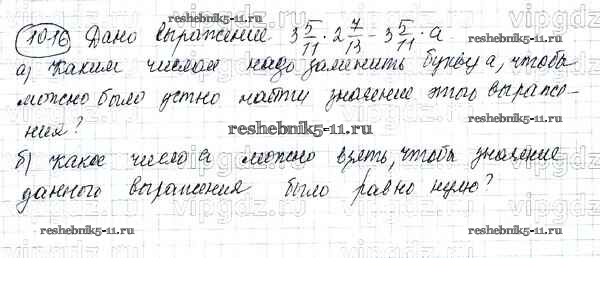 1016 Дано выражение 3 5/11 · 2 7/13 - 3 5/11 · а
а) Каким числом надо заменить букву а, чтобы
можно было устно найти значение этого выраже-
ния?
reshebnik5-11.ru
б) Какое число а можно взять, чтобы значение
данного выражения было равно нулю?
reshebnik5-11.ru
reshebnik5-11.ru
vipgdz.ru